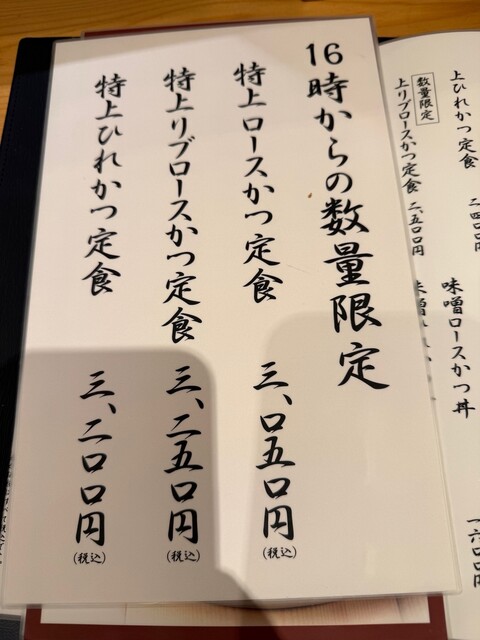 16時からの数量限定
特上ロースかつ定食 三、〇五〇円(税込)
特上リブロースかつ定食 三、二五〇円(税込)
特上ひれかつ定食 三、二〇〇円(税込)
上ひれかつ定食
数量限定
上リブロースかつ定食 二、五〇〇円
味噌ロースかつ丼